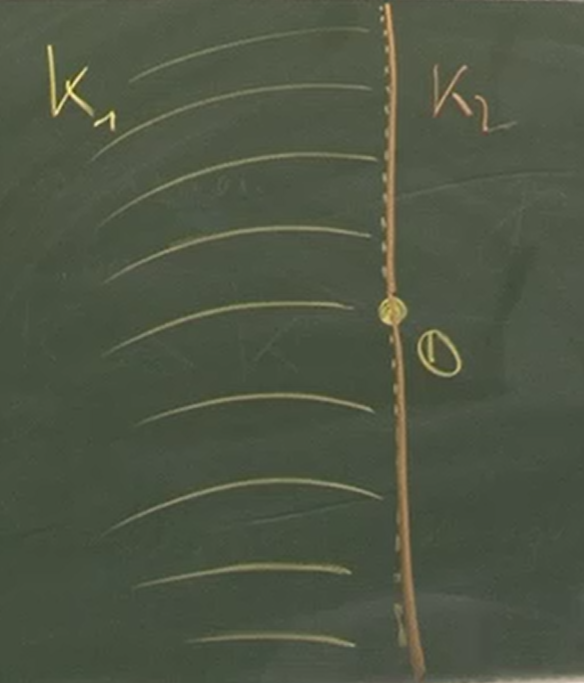 K₁
K₂
0